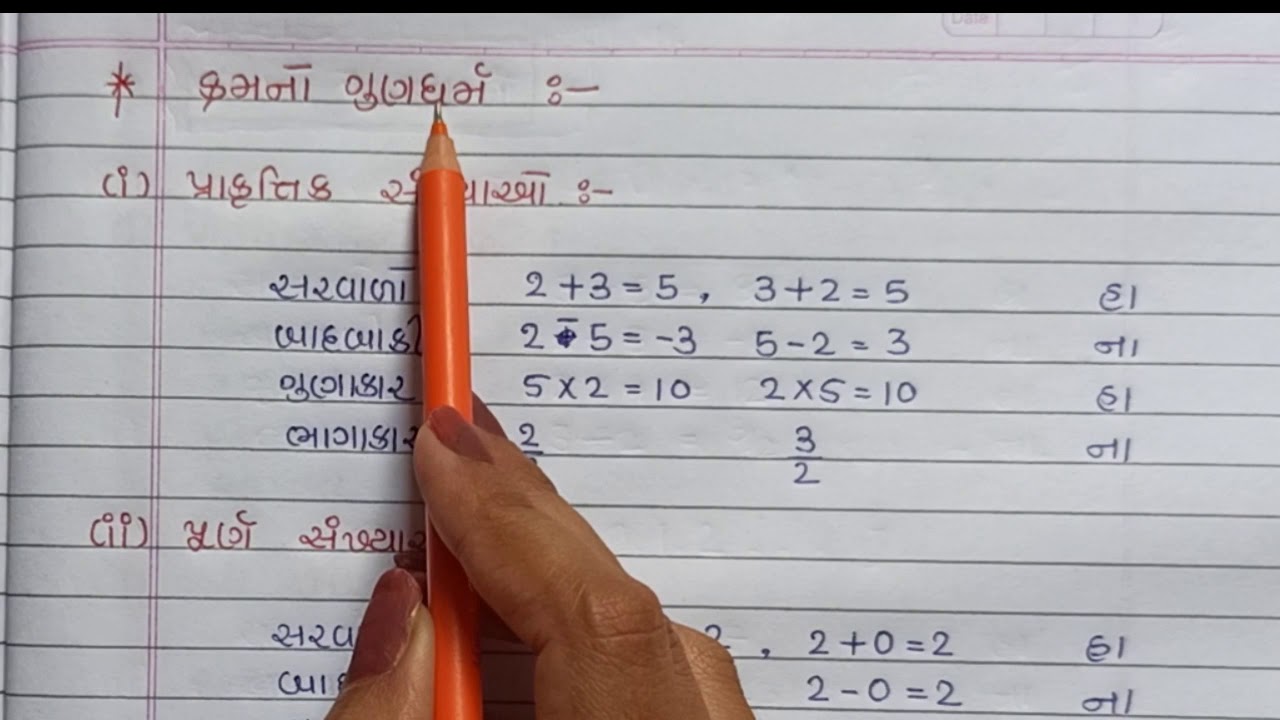 Date
* ક્રમનો ગુણધર્મ :-
(i) પ્રાકૃતિક :-
સરવાળો 2 + 3 = 5 , 3 + 2 = 5 હા
બાદબાકી 2 - 5 = -3 5 - 2 = 3 ના
ગુણાકાર 5 × 2 = 10 2 × 5 = 10 હા
ભાગાકાર 2 3/2 ના
(ii) પૂર્ણ
, 2 + 0 = 2 હા
2 - 0 = 2 ના